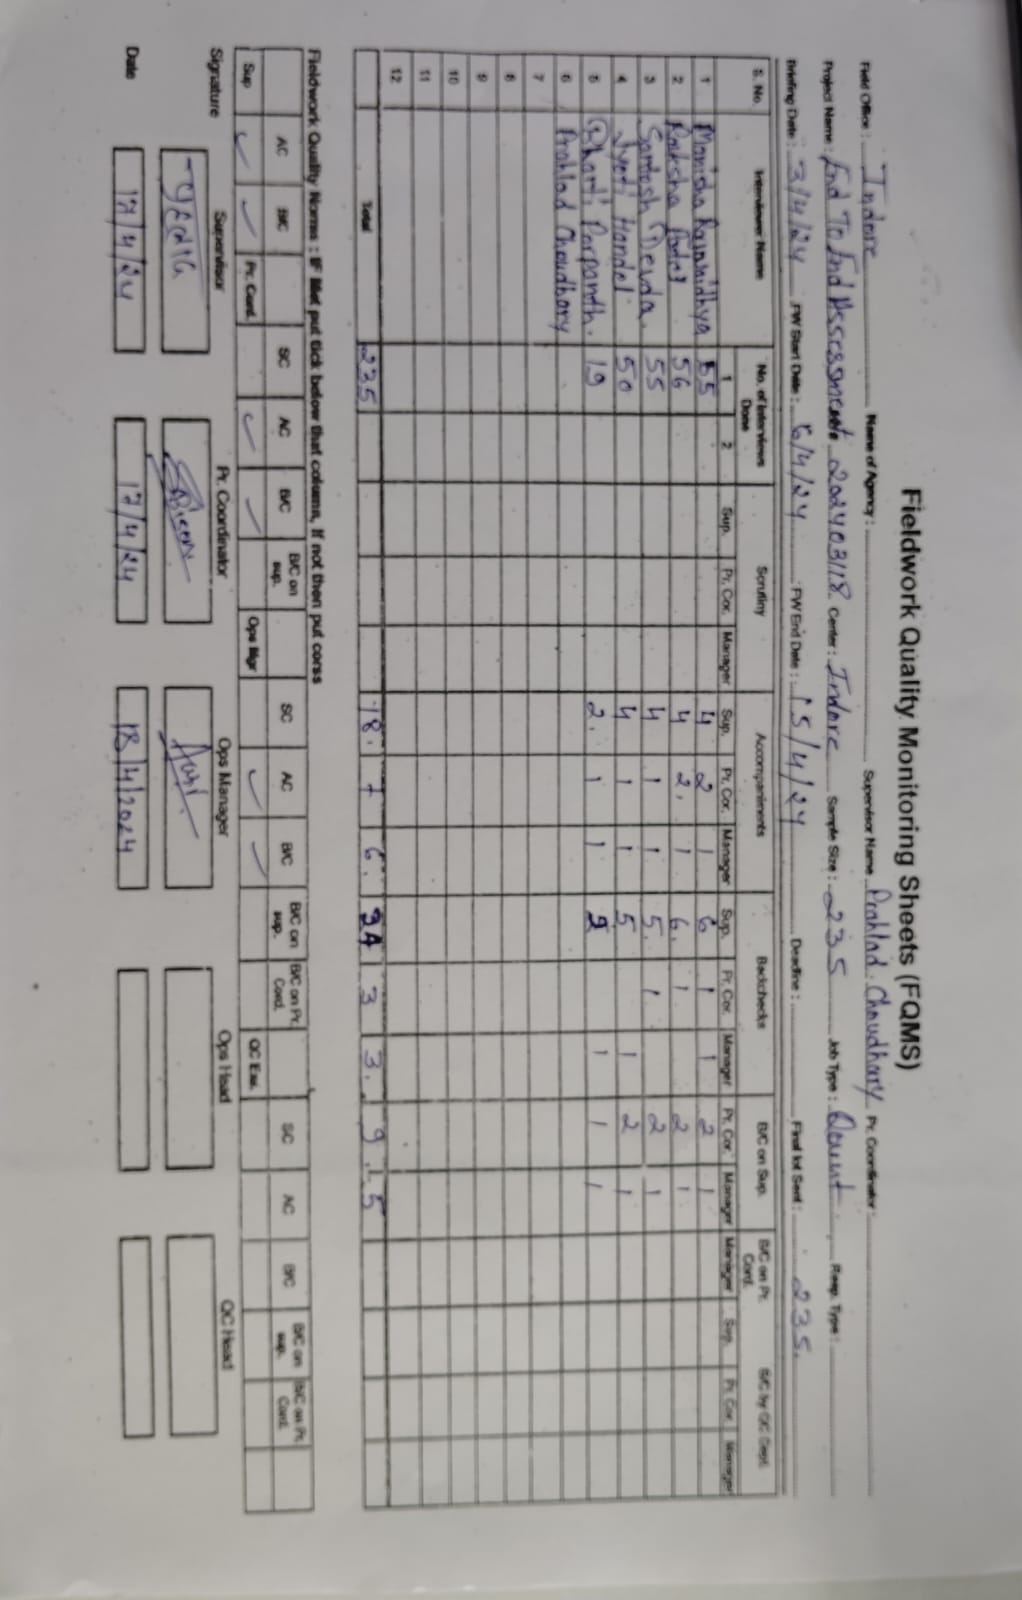 Fieldwork Quality Monitoring Sheets (FQMS)
Field Office : Indore Name of Agency : Supervisor Name Prahlad Choudhary Pr. Coordinator :
Project Name : End To End Assessment 202403118 Center : Indore Sample Size : 235 Job Type : Quant. Resp. Type :
Briefing Date : 3/4/24 FW Start Date : 5/4/24 FW End Date : 15/4/24 Deadline : Final lot Sent : 235.
S. No. Interviewer Name No. of Interviews Done Scrutiny Accompaniments Backchecks B/C on Sup. B/C on Pr. Cord. B/C by QC Dept.
1 2 Sup. Pr. Cor. Manager Sup. Pr. Cor. Manager Sup. Pr. Cor. Manager Pr. Cor. Manager Manager Sup. Pr. Cor. Manager
1 Monisha 55 4 2 1 6 1 1 2 1
2 Raksha 56 4 2. 1 6. 1 2 1
3 Santosh Devda. 55 4 1 1 5. 1 2 1
4 Jyoti Handel 50 4 1 1 5 1 2 1
5 Bharti 19 2. 1 1 2 1 1 1
6 Prahlad Choudhary
7
8
9
10
11
12
Total 235 18. 7 6. 24 3 3. 9 5
Fieldwork Quality Norms : IF Met put tick below that column, If not then put corss
AC B/C SC AC B/C B/C on sup. SC AC B/C B/C on sup. B/C on Pr. Cord. SC AC B/C B/C on sup. B/C on Pr. Cord.
Sup ✓ ✓ Pr. Cord. ✓ ✓ Ops Mgr ✓ ✓ QC Exe.
Supervisor Pr. Coordinator Ops Manager Ops Head QC Head
Signature
Date 17/4/24 17/4/24 18/4/2024